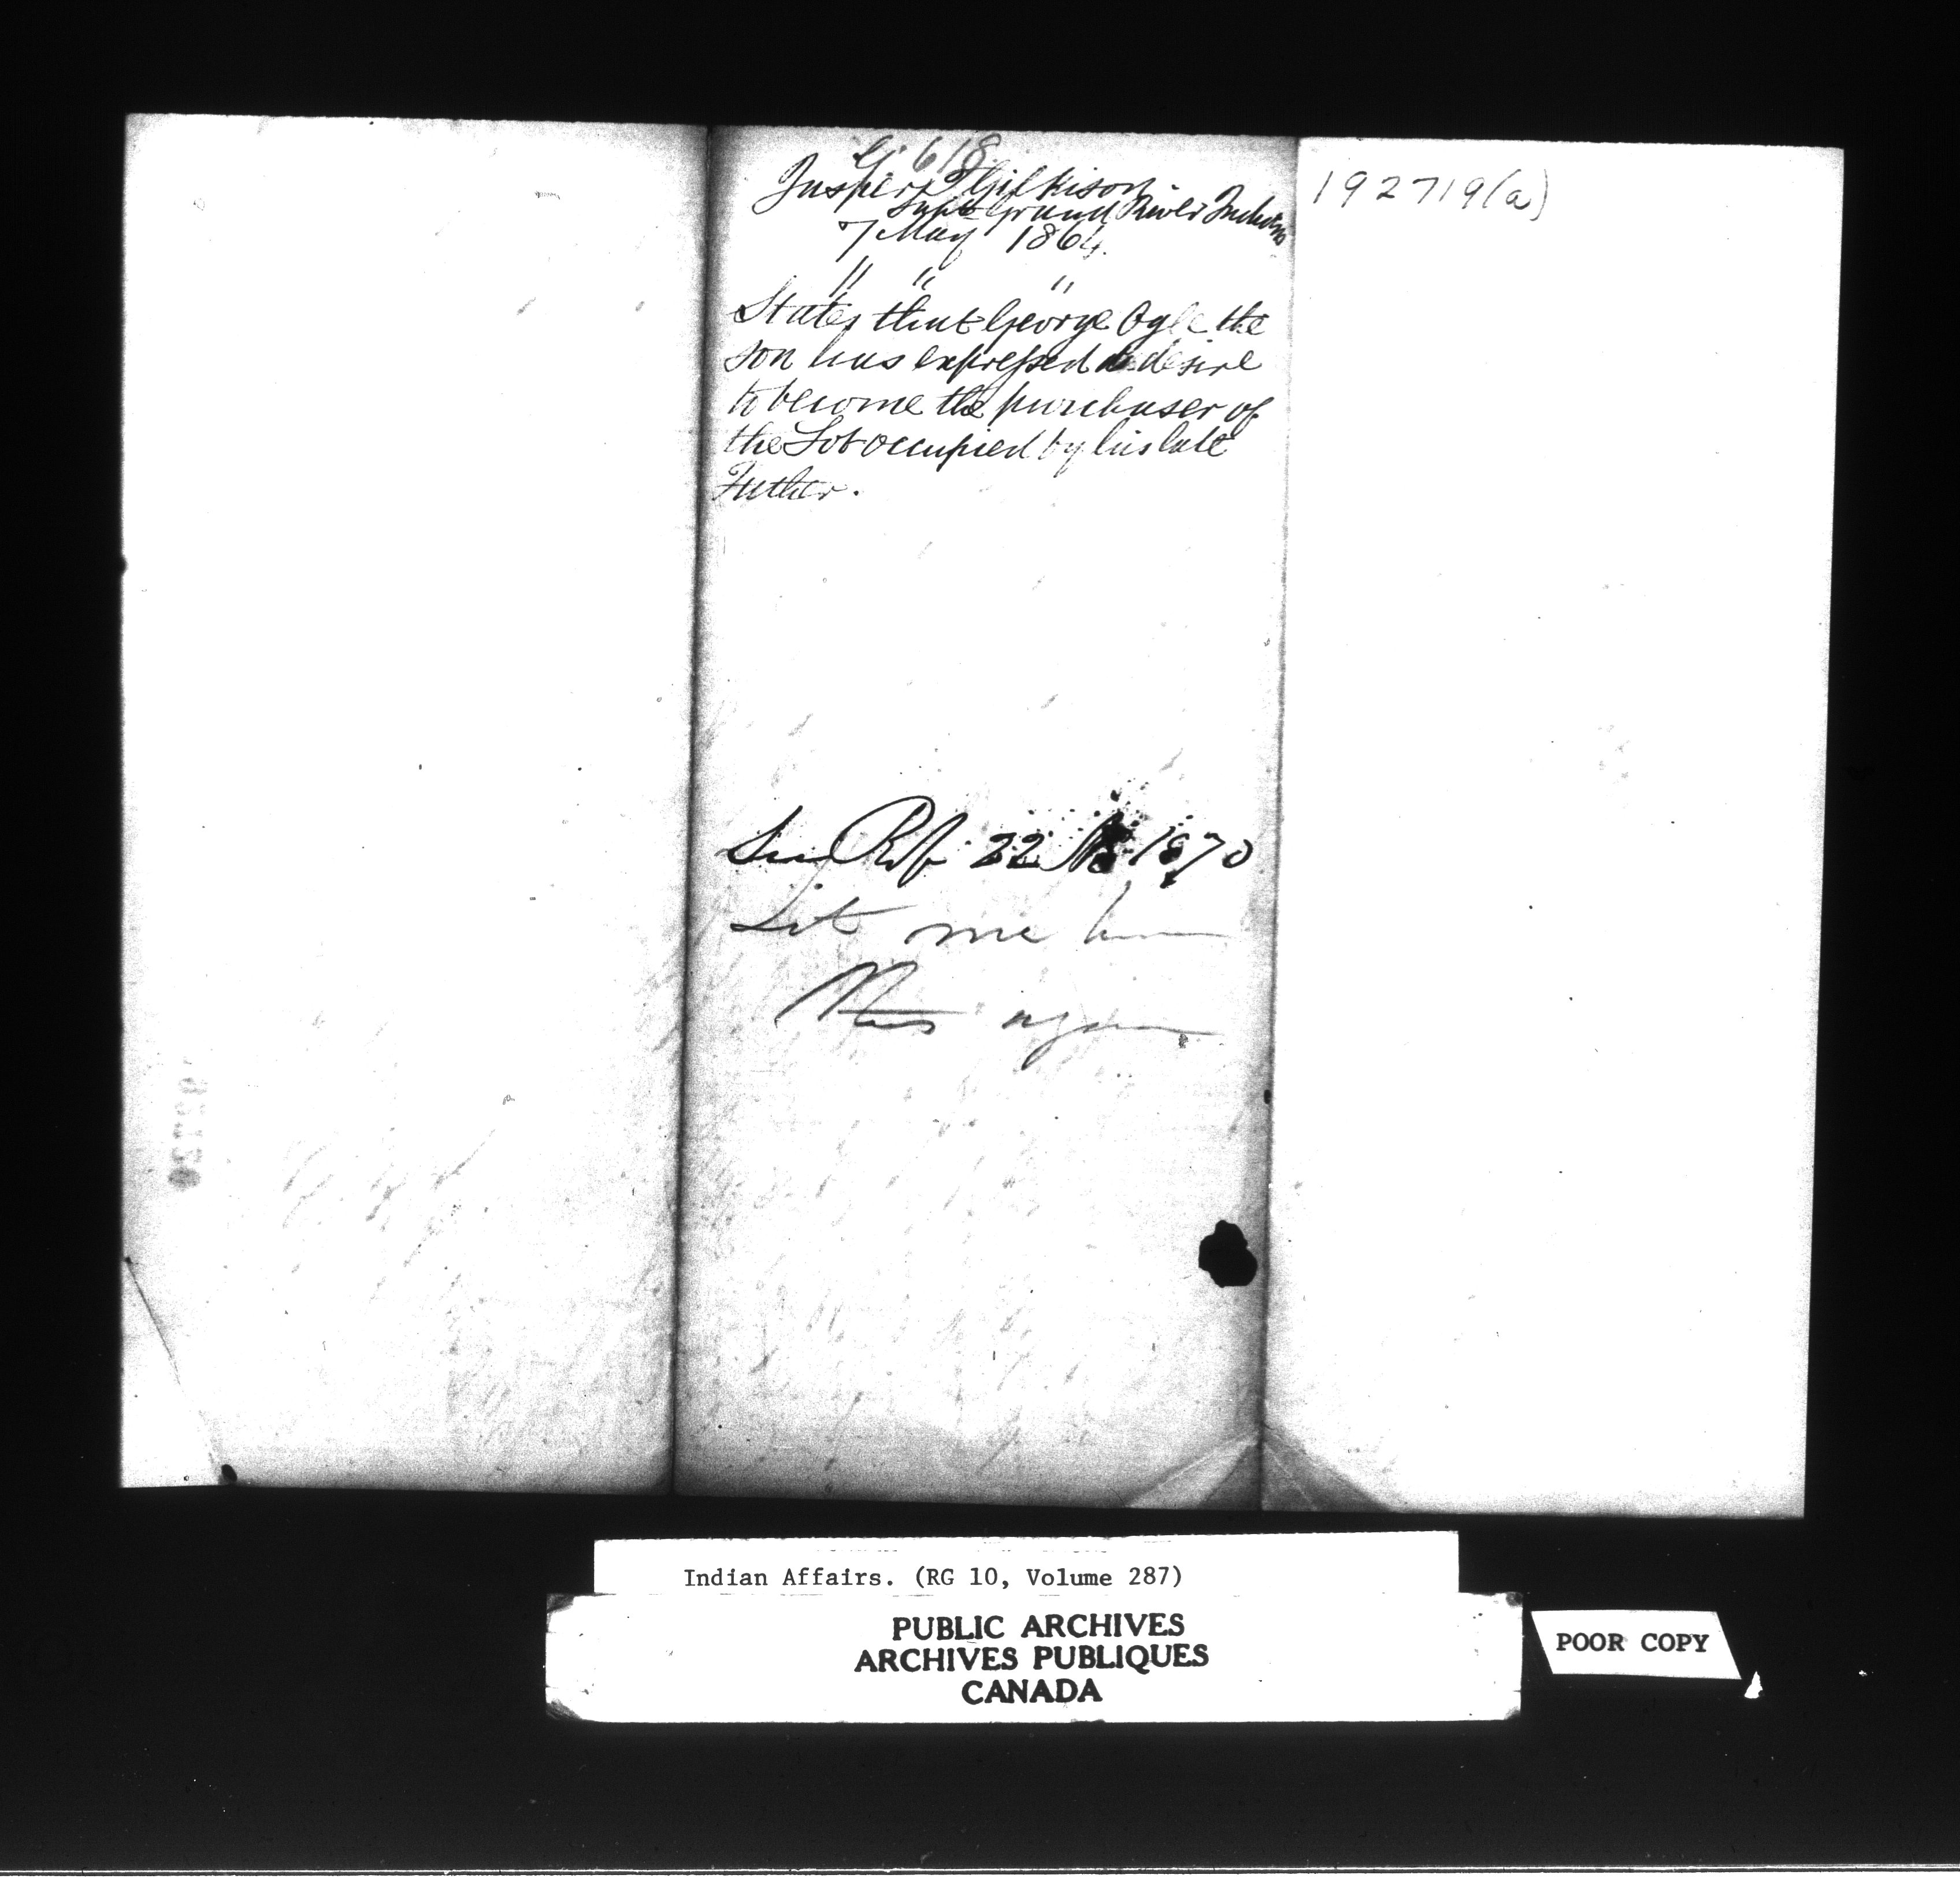 G. 618
Jasper T Gilkison
Supt Grand River Indians
7 May 1864.
" " "
States that George Ogle the
son has expressed a desire
to become the purchaser of
the Lot occupied by his late
Father.
192719(a)
22 1870
Let me have
this again
Indian Affairs. (RG 10, Volume 287)
PUBLIC ARCHIVES
ARCHIVES PUBLIQUES
CANADA
POOR COPY